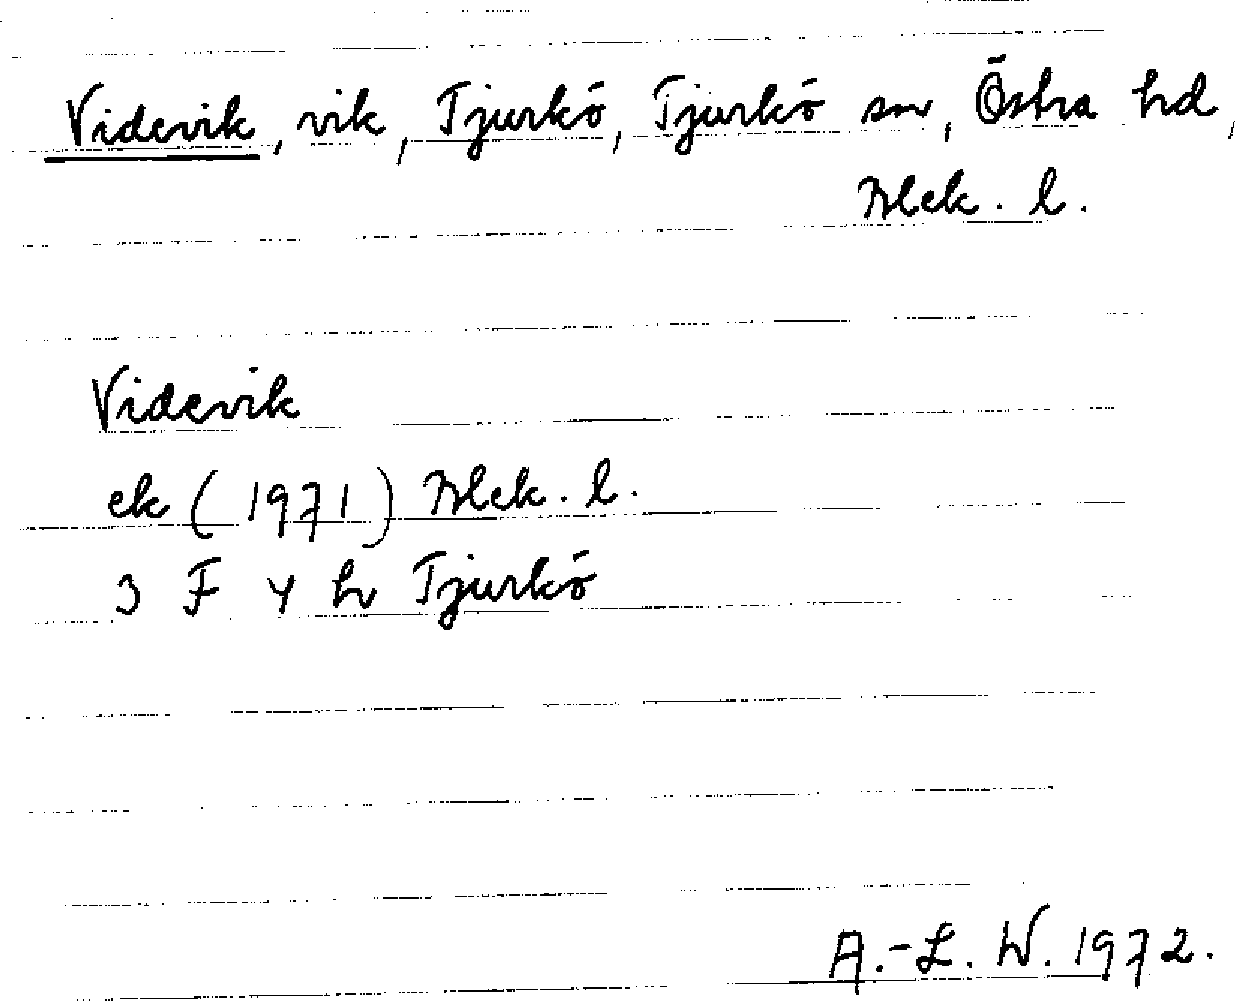 Videvik, vik, Tjurkö, Tjurkö sn, Östra hd,
Blek. l.
Videvik
ek (1971) Blek. l.
3 F 4 h Tjurkö
A.-L. W. 1972.